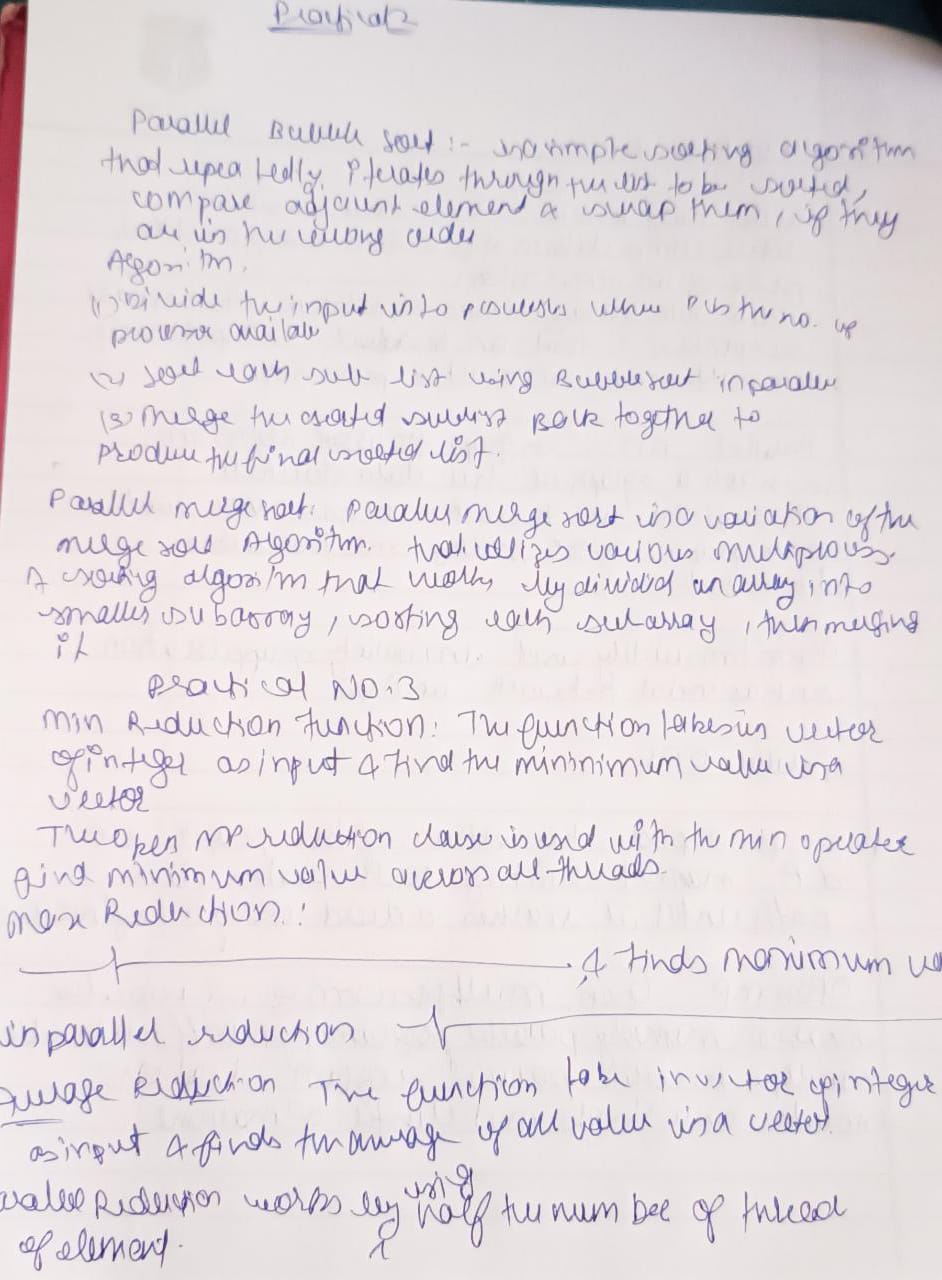 Practical 2
Parallel Bubble Sort :- is a simple sorting algorithm
that repea tedly, iterates through the list to be sorted,
compare adjacent element & swap them, if they
are in the wrong order
Algorithm.
(1) Divide the input into processes where P is the no. of
processor availabe
(2) Sort each sub list using Bubble sort in parallel
(3) Merge the sorted sublist Back together to
produce the final sorted list.
Parallel merge sort: Parallel merge sort is a variation of the
merge sort Algorithm. that utilizes various
A sorting algorithm that works by divided an array into
smaller subarray, sorting each subarray, then merging
it
Practical NO:3
Min Reduction function: The function takes in vector
of integer as input & find the mininimum value in a
vector
The open MP reduction clause is used with the min operator
find minimum value across all threads.
Max Reduction:
& finds maximum va
in parallel reduction
Average Reduction The function take in vector of integer
as input & finds the average of all value in a vector
Reduction works by using half the number of thread
of element.